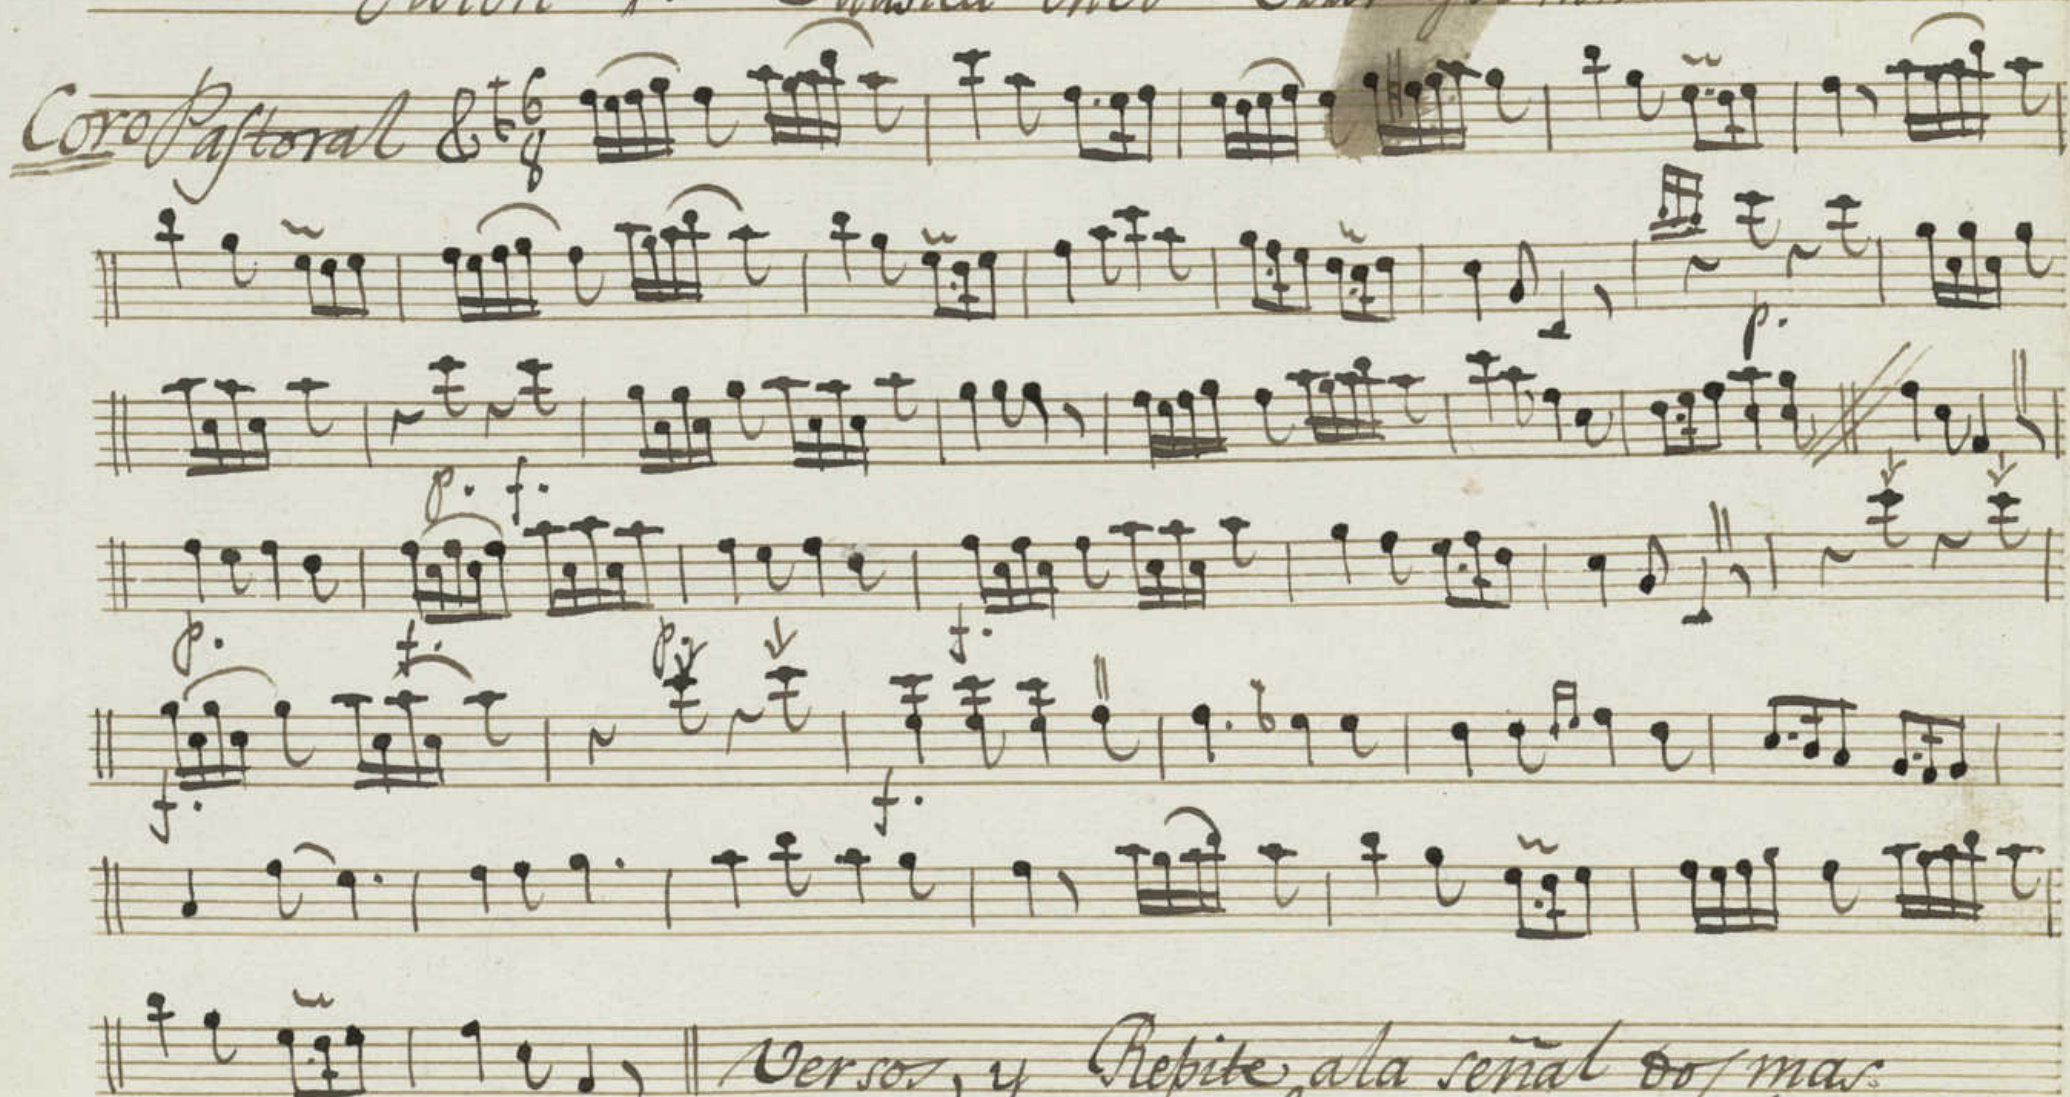 Coro Pastoral 6 8
p.
p. f.
p. f. p. f.
f. f.
Versos, y Repite, a la señal dos mas.